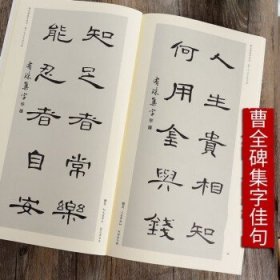 人生貴相知
何用金與錢
集字
知足者常樂
能忍者自安
集字
曹全碑集字佳句